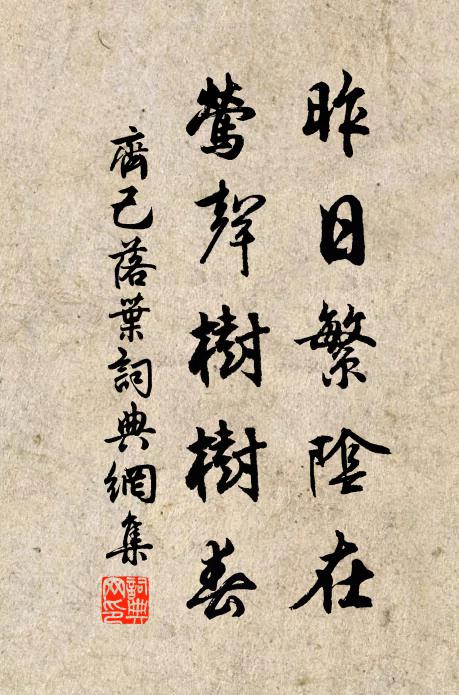 昨日繁陰在
鶯聲樹樹春
齊己落葉詞典網集
詞典網印